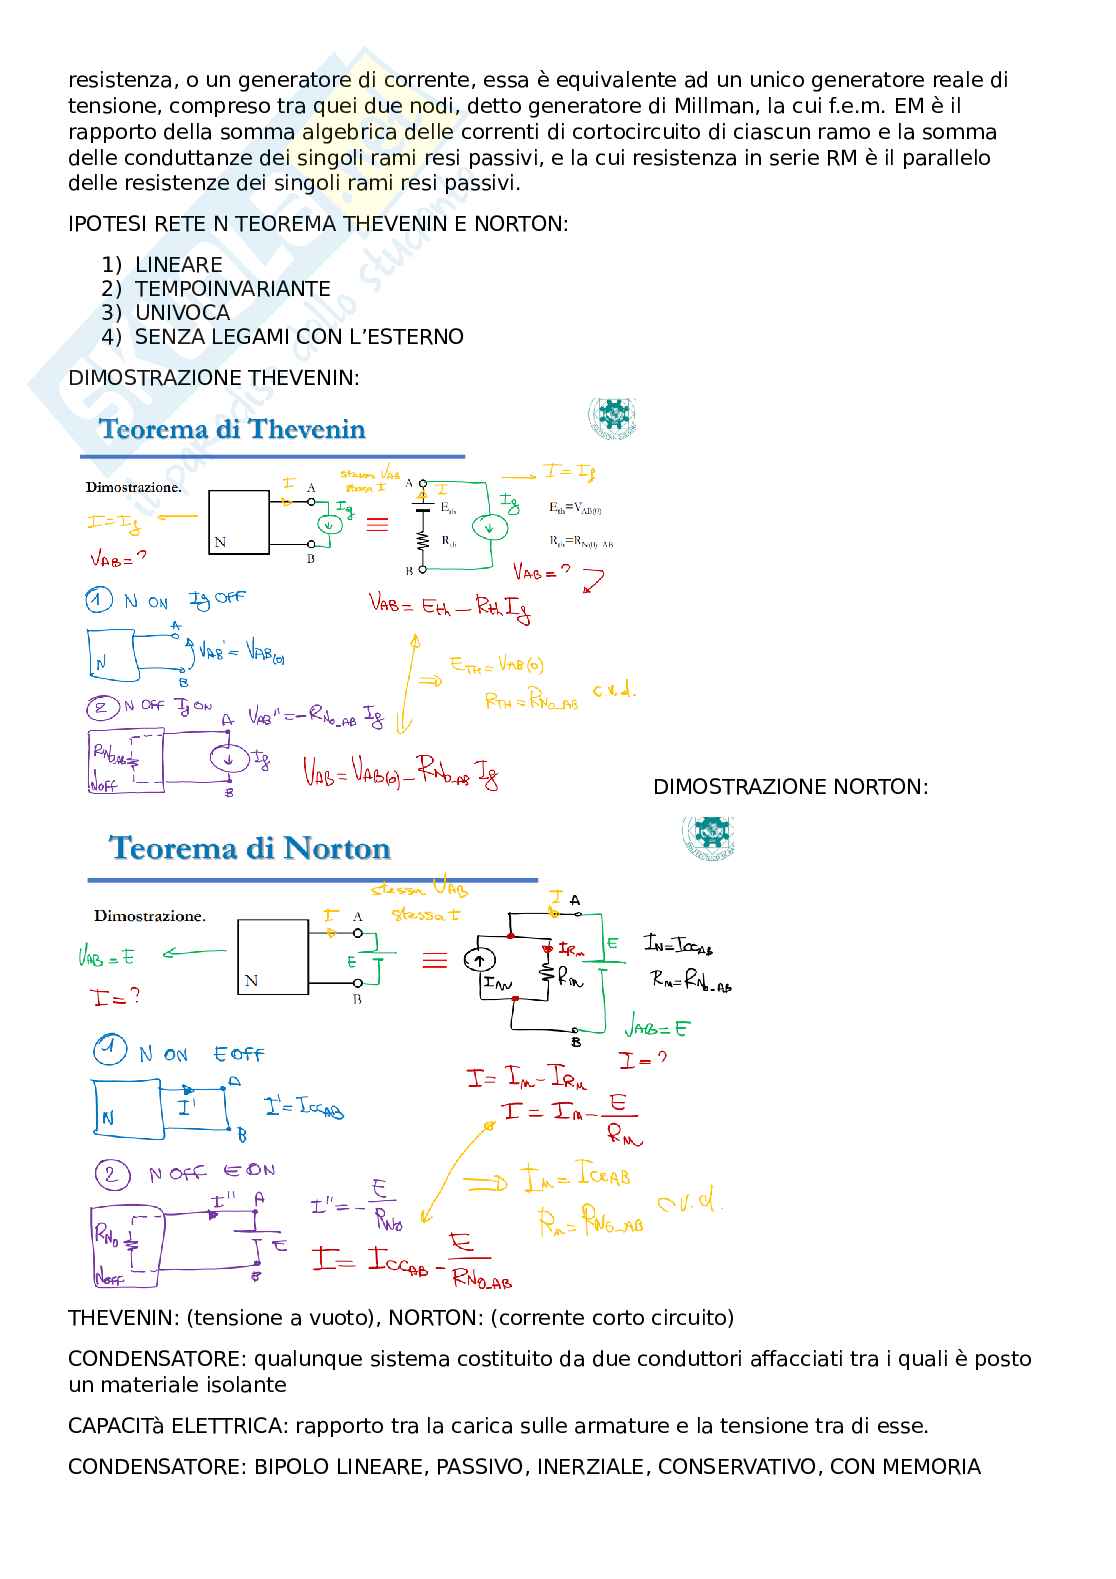 resistenza, o un generatore di corrente, essa è equivalente ad un unico generatore reale di
tensione, compreso tra quei due nodi, detto generatore di Millman, la cui f.e.m. EM è il
rapporto della somma algebrica delle correnti di cortocircuito di ciascun ramo e la somma
delle conduttanze dei singoli rami resi passivi, e la cui resistenza in serie RM è il parallelo
delle resistenze dei singoli rami resi passivi.
IPOTESI RETE N TEOREMA THEVENIN E NORTON:
1) LINEARE
2) TEMPOINVARIANTE
3) UNIVOCA
4) SENZA LEGAMI CON L'ESTERNO
DIMOSTRAZIONE THEVENIN:
Teorema di Thevenin
Dimostrazione.
I = Ig
V_AB = ?
N
I
A
B
Ig
stessa V_AB
stessa I
≡
A
I
E_th
R_th
B
Ig
I = Ig
E_th=V_AB(0)
R_th=R_N(0)_AB
V_AB = ?
1 N ON Ig OFF
V_AB = E_th - R_th Ig
N
A
B
V_AB' = V_AB(0)
⇒ E_TH = V_AB(0)
R_TH = R_N0_AB c.v.d.
2 N OFF Ig ON
V_AB'' = -R_N0_AB Ig
R_N0_AB
N OFF
A
B
Ig
V_AB = V_AB(0) - R_N0_AB Ig
DIMOSTRAZIONE NORTON:
Teorema di Norton
Dimostrazione.
V_AB = E
I = ?
N
I
A
B
E
stessa V_AB
stessa I
≡
I A
I_N
I_Rn
R_n
E
B
I_N = Icc_AB
R_n = R_N0_AB
V_AB = E
I = ?
1 N ON E OFF
I = I_n - I_Rn
I = I_n - E/R_n
N
I'
A
B
I' = Icc_AB
2 N OFF E ON
⇒ I_n = Icc_AB
R_n = R_N0_AB c.v.d.
R_N0
N OFF
I''
A
B
E
I'' = - E/R_N0
I = Icc_AB - E/R_N0_AB
THEVENIN: (tensione a vuoto), NORTON: (corrente corto circuito)
CONDENSATORE: qualunque sistema costituito da due conduttori affacciati tra i quali è posto
un materiale isolante
CAPACITà ELETTRICA: rapporto tra la carica sulle armature e la tensione tra di esse.
CONDENSATORE: BIPOLO LINEARE, PASSIVO, INERZIALE, CONSERVATIVO, CON MEMORIA
SKUOLA.net
il paradiso dello studente